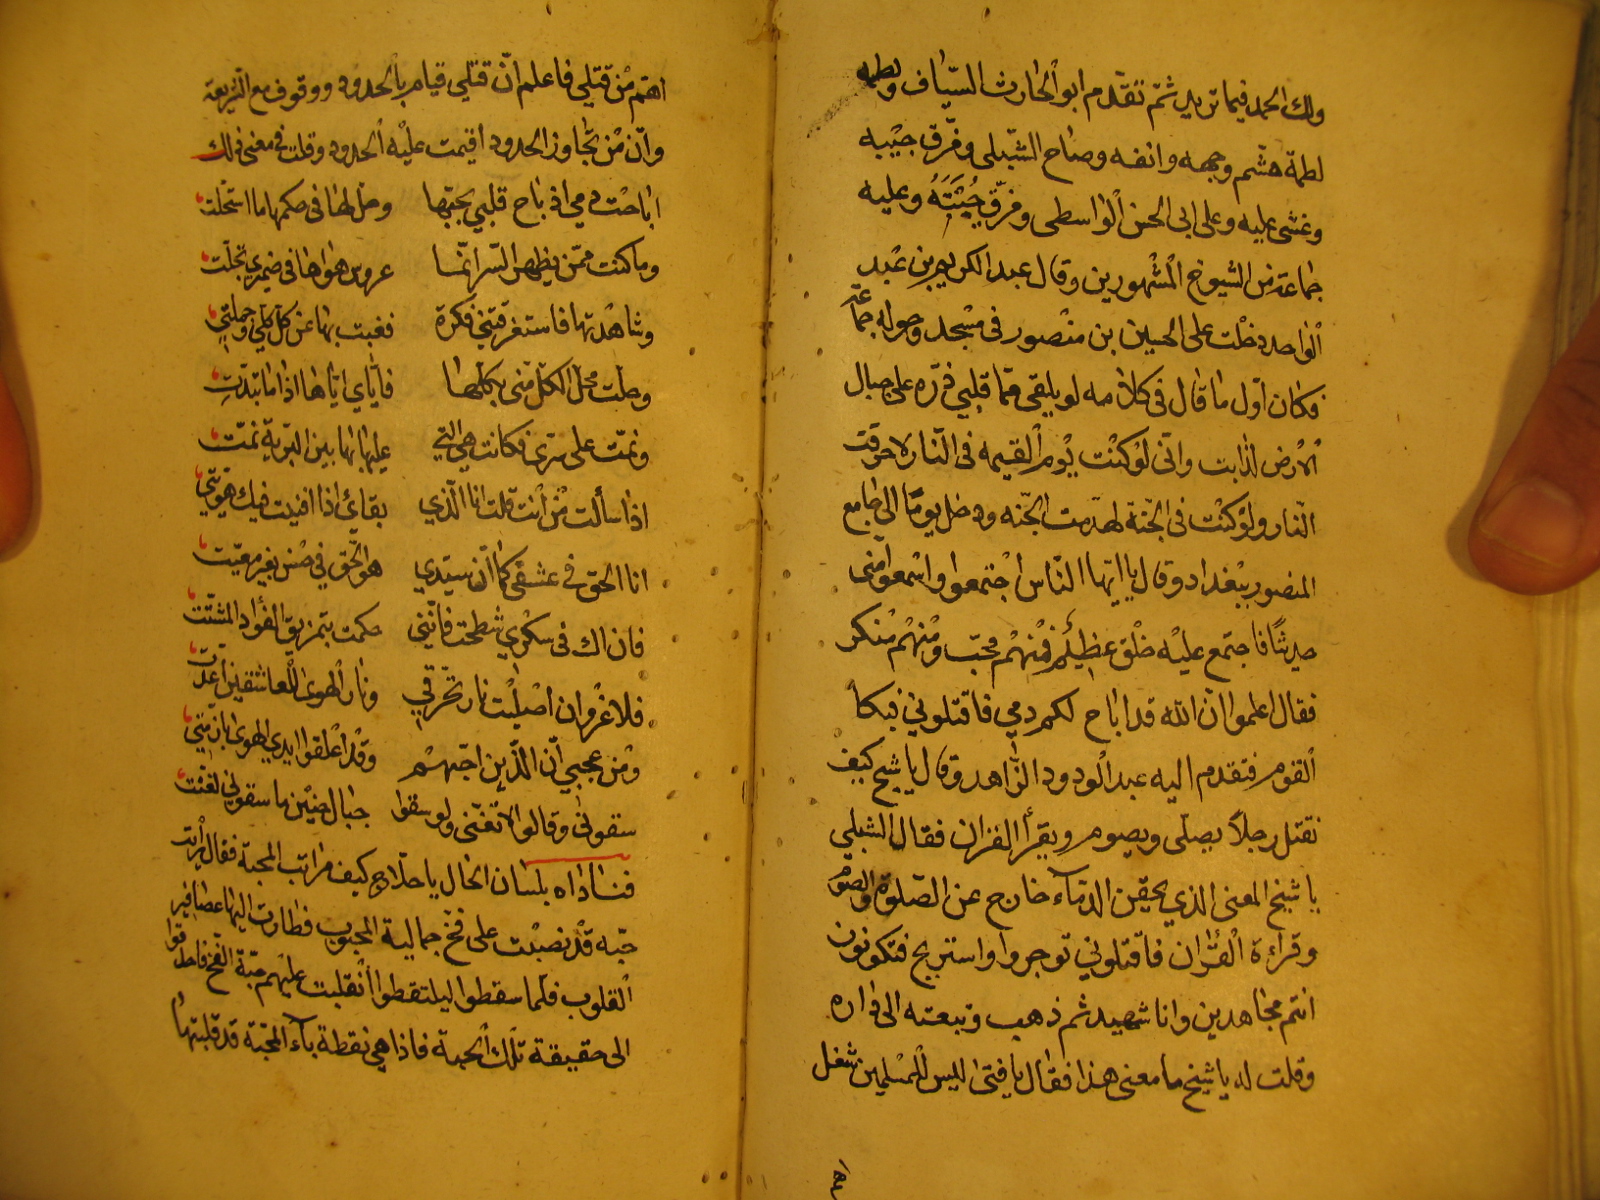 ولك الحمد فيما تريد ثمّ تقدّم ابو الحارث السّيّاف ولطمه
لطمة هشم وجهه وانفه وصاح الشبلى وفرّق جيبه
وغشى عليه وعلى ابى الحسن الواسطى وفرّق جُبَّتَهُ وعليه
جماعة من الشيوخ المشهورين وقال عبد الكريم بن عبد
الواحد دخلت على الحسين بن منصور فى مسجد وحوله جماعة
فكان اول ما قال فى كلامه لو يلقى ممّا قلبي ذرّه على جبال
الارض لذابت وانّى لو كنت يوم القيمه فى النّار لاحرقت
النّار ولو كنت فى الجنّة لهدمت الجنّه ودخل يومًا الى جامع
المنصور ببغداد وقال يا ايّها النّاس اجتمعوا واسمعوا منّى
حديثًا فاجتمع عليه خلق عظيم فمنهم محبّ ومنهم منكر
فقال اعلموا انّ الله قد اباح لكم دمي فاقتلوني فبكا
القوم فتقدم اليه عبد الودود الزّاهد وقال يا شيخ كيف
نقتل رجلاً يصلّى ويصوم ويقرأ القران فقال الشبلي
يا شيخ المعنى الذي يحقن الدمآء خارج عن الصّلوة والصّوم
وقراءة القران فاقتلوني توجروا واستريح فتكونون
انتم مجاهدين وانا شهيد ثم ذهب وتبعته الى داره
وقلت له يا شيخ ما معنى هذا فقال يا فتى اليس للمسلمين شغل
اهمّ من قتلي فاعلم انّ قتلي قيام بالحدود ووقوف مع الشّريعة
وانّ من تجاوز الحدود اقيمت عليه الحدود وقلت فى معنى ذلك
اباحت دمي اذ باح قلبي بحبّها وحل لها فى حكمها ما استحلّت
وما كنت ممّن يظهر السّر انّما عروس هواها فى ضميري تجلّت
وشاهدتها فاستغرقتني فكرة فغبت بها عن كلّ كلّي وجملتي
وحلّت محلّ الكلّ منّى بكلّها فايّاي ايّاها اذا ما تبدّتِ
ونمّت على سرّي فكانت هي الّتي عليها بها بين البريّة نمّت
اذا سألت من أنت قلت انا الّذي بقائ اذا افنيت فيك هويّتي
انا الحق فى عشقى كما انّ سيّدي هو الحق في حسن بغير معيّت
فان اك فى سكري شطحت فانّني حكمت بتمزيق الفؤاد المشتّت
فلا غرو ان اصليت نار تحرّقي ونار الهوى للعاشقين أعدّت
ومن عجبي انّ الّذين احبّهم وقد أعلقوا ايدي الهوى بازمّتي
سقوني وقالوا لا تغنّى ولو سقوا جبال حنين ما سقوني لغنّت
فناداه بلسان الحال يا حلّاج كيف مراتب المحبّة فقال رأيت
حبّه قد نصبت على فخّ جمالية المحبوب فطارت اليها عصافير
القلوب فلمّا سقطوا ليلتقطوا انقلبت عليهم حبّة الفخّ فاحدقوا
الى حقيقة تلك الحبة فاذا هي نقطة بآء المحبّة قد قلبتها